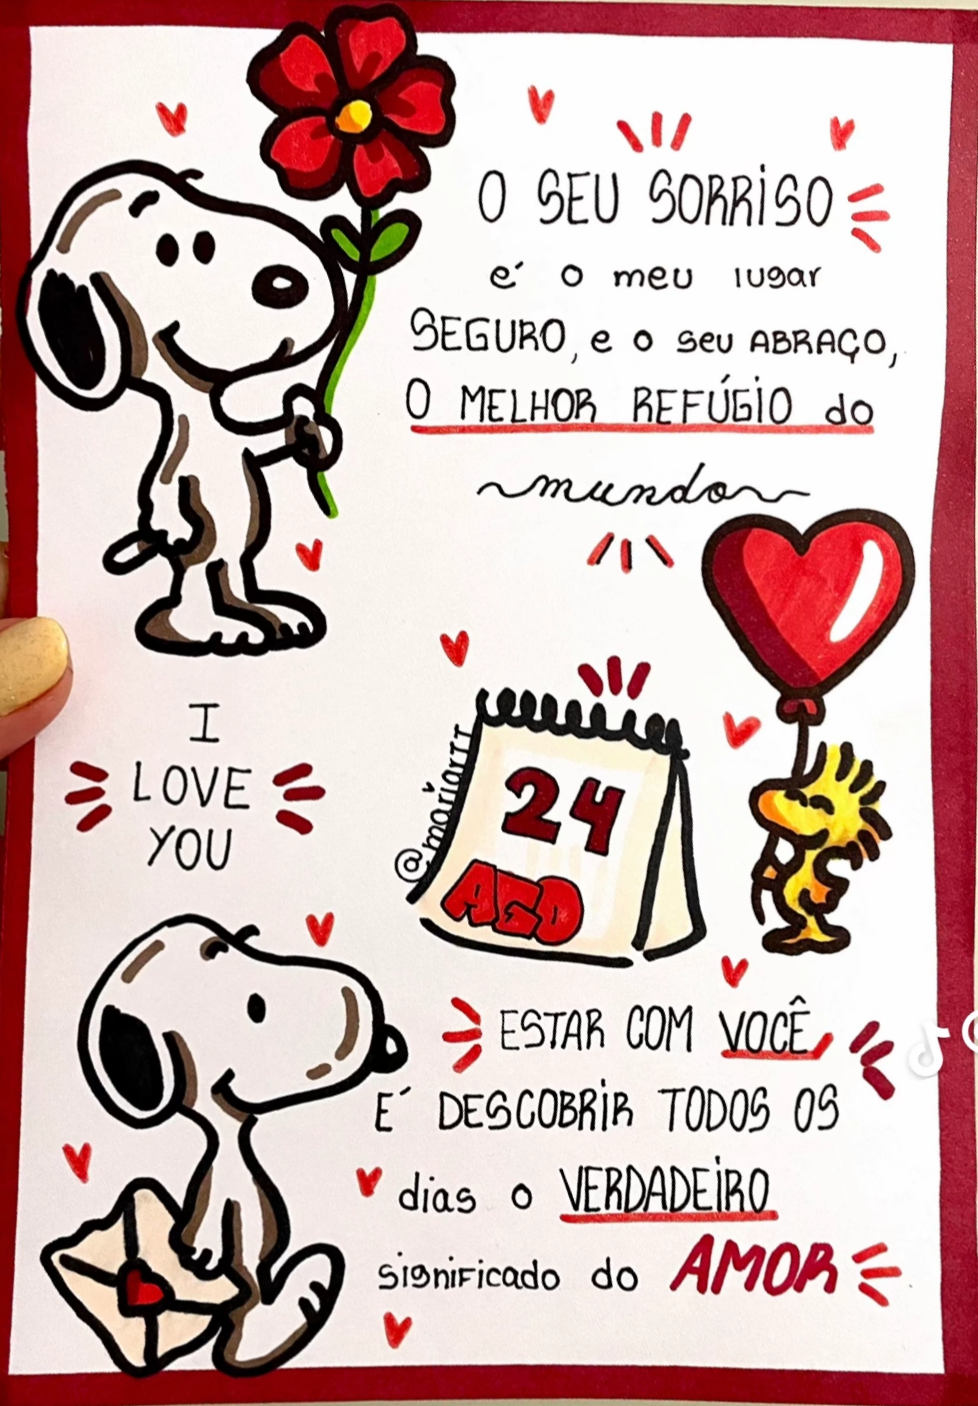 O SEU SORRISO
é o meu lugar
SEGURO, e o seu ABRAÇO,
O MELHOR REFÚGIO do
mundo
I
LOVE
YOU
@mariarrr
24
AGO
ESTAR COM VOCÊ
É DESCOBRIR TODOS OS
dias o VERDADEIRO
significado do AMOR